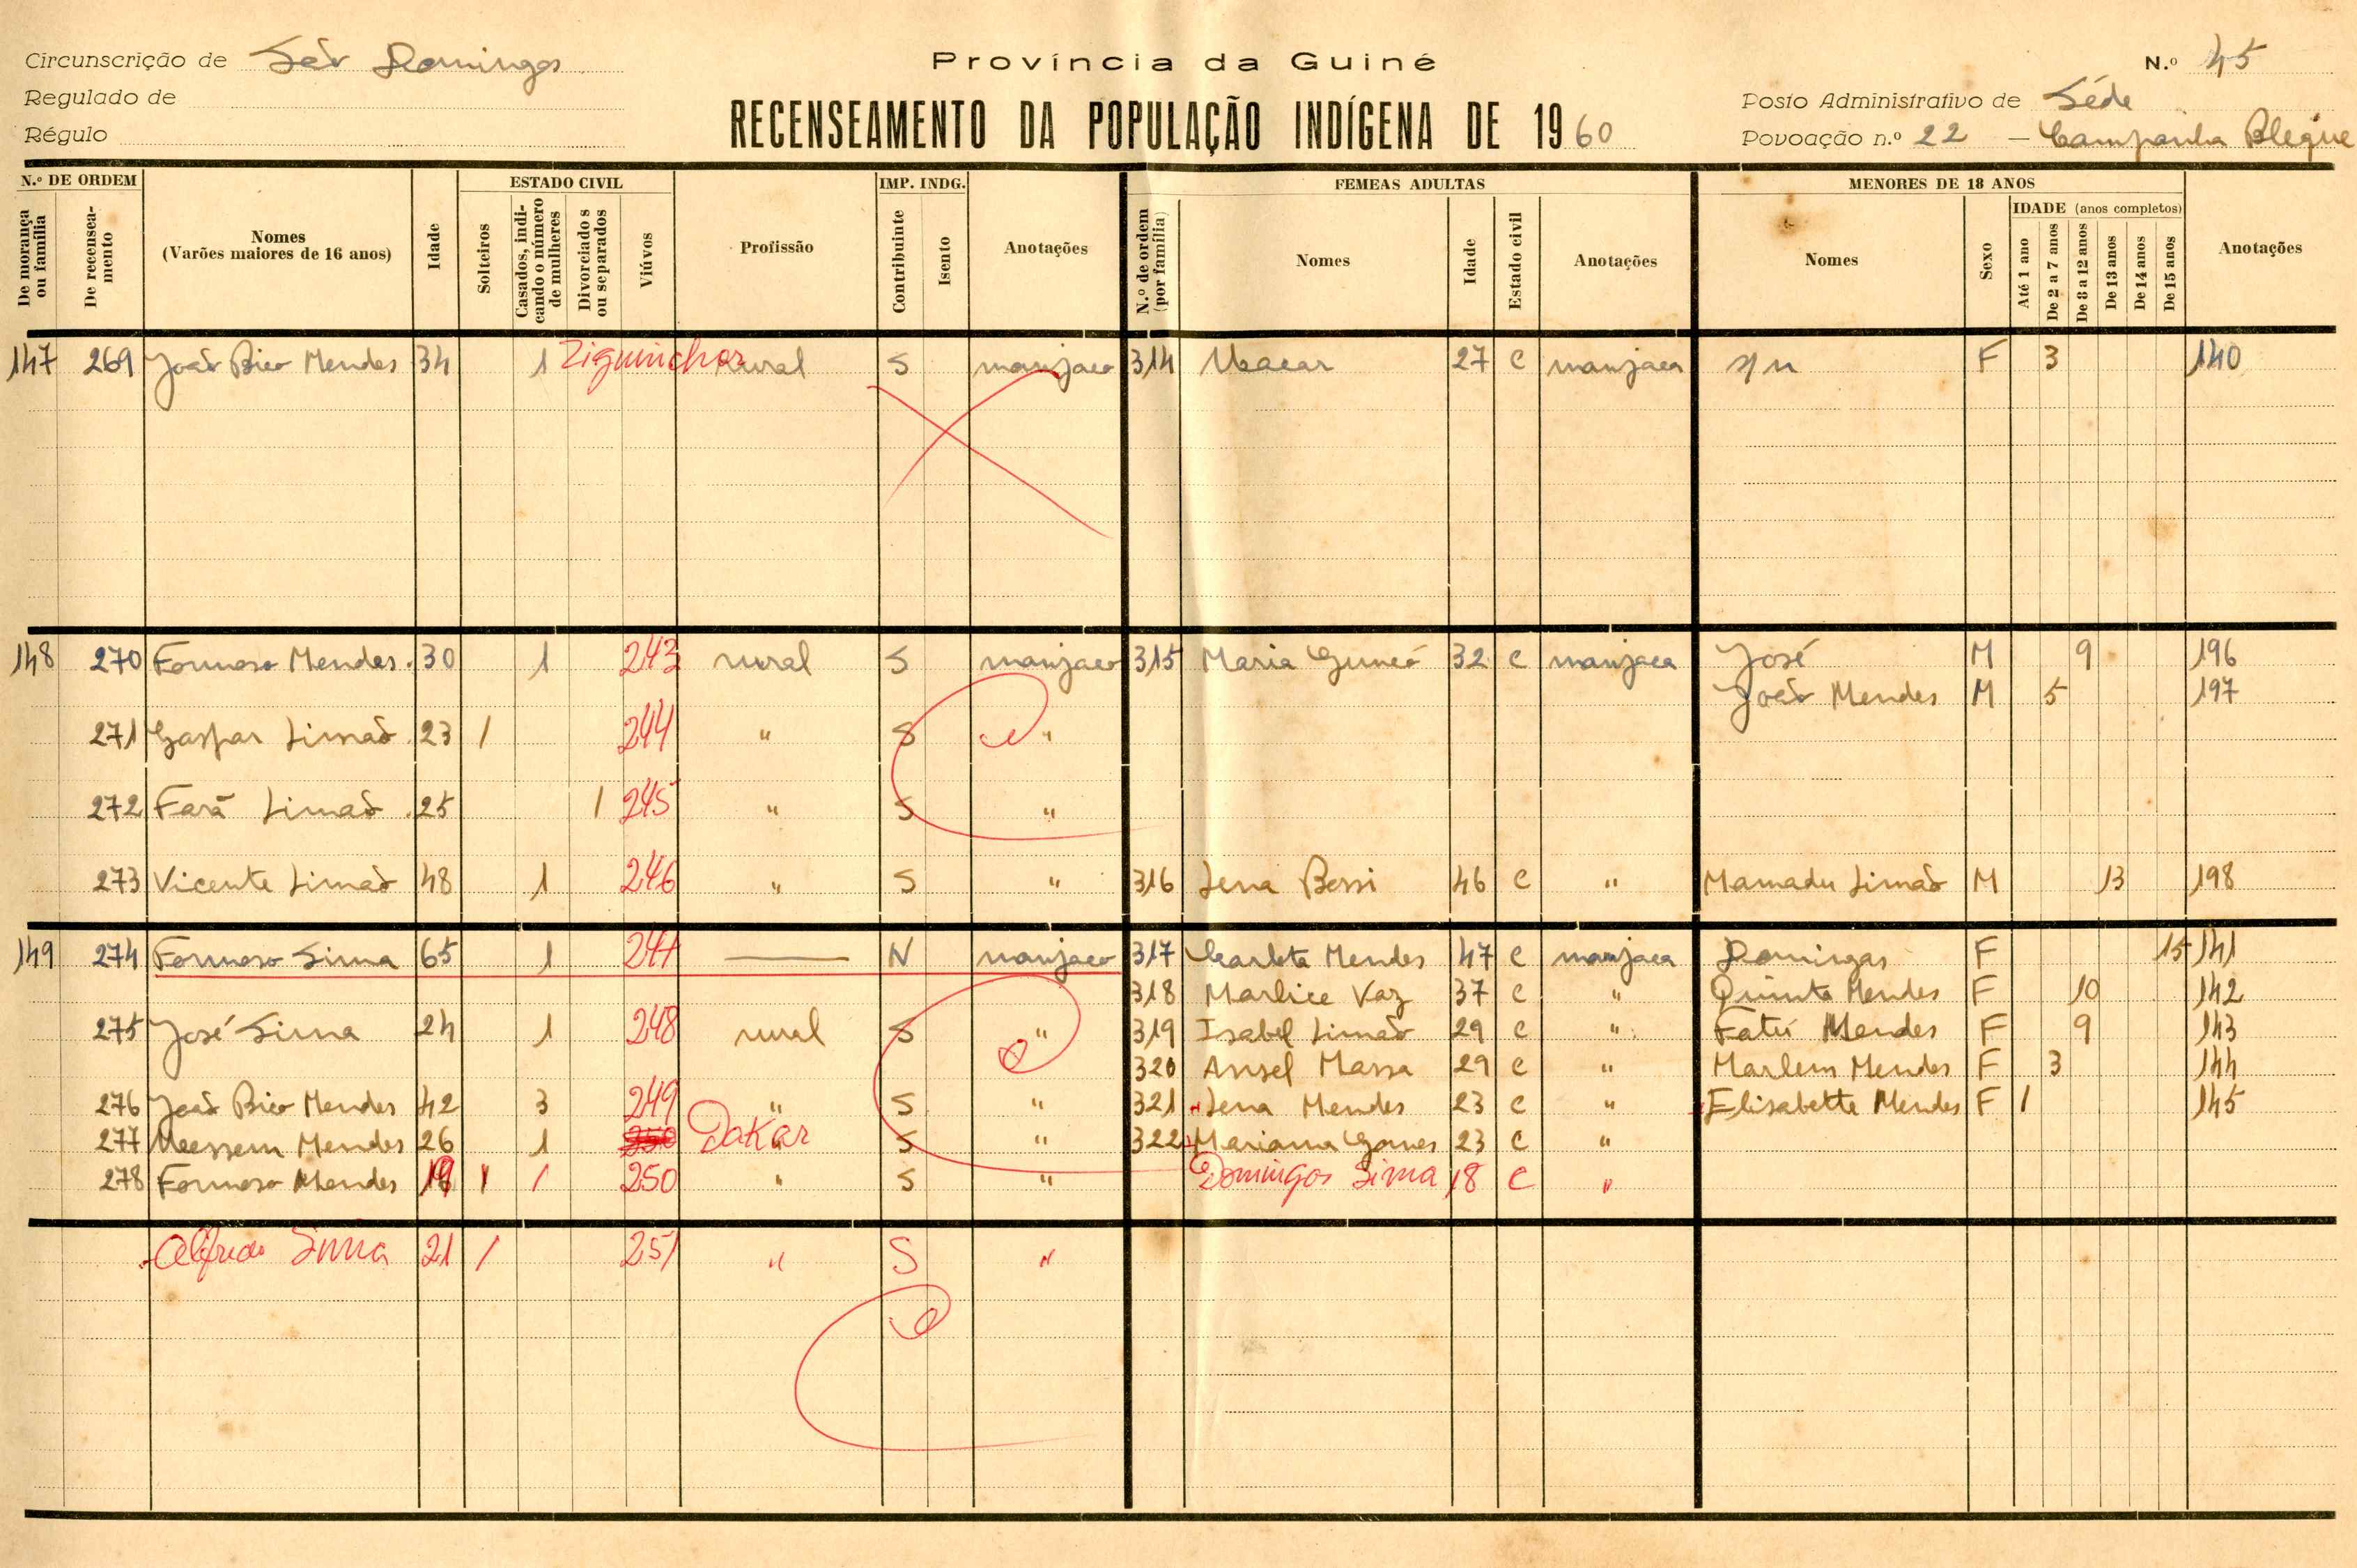 Circunscrição de São Domingos
Província da Guiné
N.º 45
Regulado de
Régulo
RECENSEAMENTO DA POPULAÇÃO INDÍGENA DE 1960
Posto Administrativo de Séde
Povoação n.º 22 — Campanha Bleque
N.º DE ORDEM
De morança ou família
De recensea-mento
Nomes
(Varões maiores de 16 anos)
Idade
ESTADO CIVIL
Solteiros
Casados, indi-cando o número de mulheres
Divorciados ou separados
Viúvos
Profissão
IMP. INDG.
Contribuinte
Isento
Anotações
FEMEAS ADULTAS
N.º de ordem (por família)
Nomes
Idade
Estado civil
Anotações
MENORES DE 18 ANOS
Nomes
Sexo
IDADE (anos completos)
Até 1 ano
De 2 a 7 anos
De 8 a 12 anos
De 13 anos
De 14 anos
De 15 anos
Anotações
147 269 João Bico Mendes 34 1 Ziguinchor rural S manjaco 314 27 C manjaca s/n F 3 140
148 270 Formoso Mendes 30 1 243 rural S manjaco 315 Maria 32 C manjaca José M 9 196
João Mendes M 5 197
271 Gaspar Limaõ 23 / 244 " S "
272 Fará Limaõ 25 / 245 " S "
273 Vicente Limaõ 48 1 246 " S " 316 Lena Bessi 46 C " Mamadu Limaõ M 13 198
149 274 Formoso Sima 65 1 247 — N manjaco 317 Carlota Mendes 47 C manjaca Domingas F 15 141
318 Marlice Vaz 37 C " Quinta Mendes F 10 142
275 José Sima 24 1 248 rural S " 319 Isabel Limaõ 29 C " Fatú Mendes F 9 143
320 Ansel Massa 29 C " Marlem Mendes F 3 144
276 João Bico Mendes 42 3 249 " S " 321 Lena Mendes 23 C " Elisabette Mendes F 1 145
277 Mendes 26 1 250 Dakar " S " 322 Mariama Gomes 23 C "
278 Formoso Mendes 19 1 / 250 " S " Domingos Sima 18 C "
Alfredo Sima 21 / 251 " S "